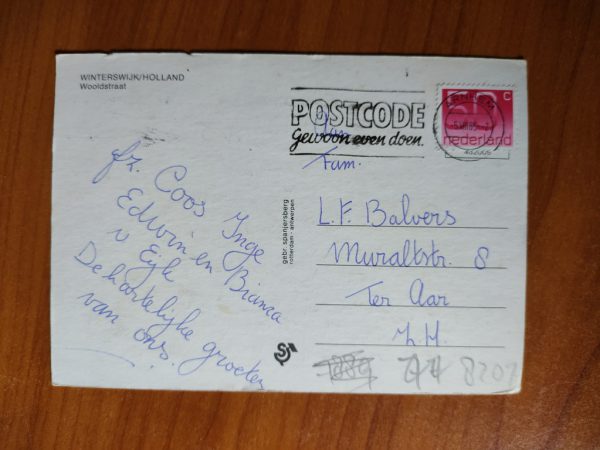 WINTERSWIJK/HOLLAND
Wooldstraat
fz. Coos Inge
Edwin en Bianca
v Eijk
De hartelijke groeten
van ons.
gebr. spanjersberg
rotterdam - antwerpen
POSTCODE
Gewoon even doen.
C
nederland
Fam.
L.F. Balvers
Muraltstr. 8
Ter Aar
Z.H.
8207